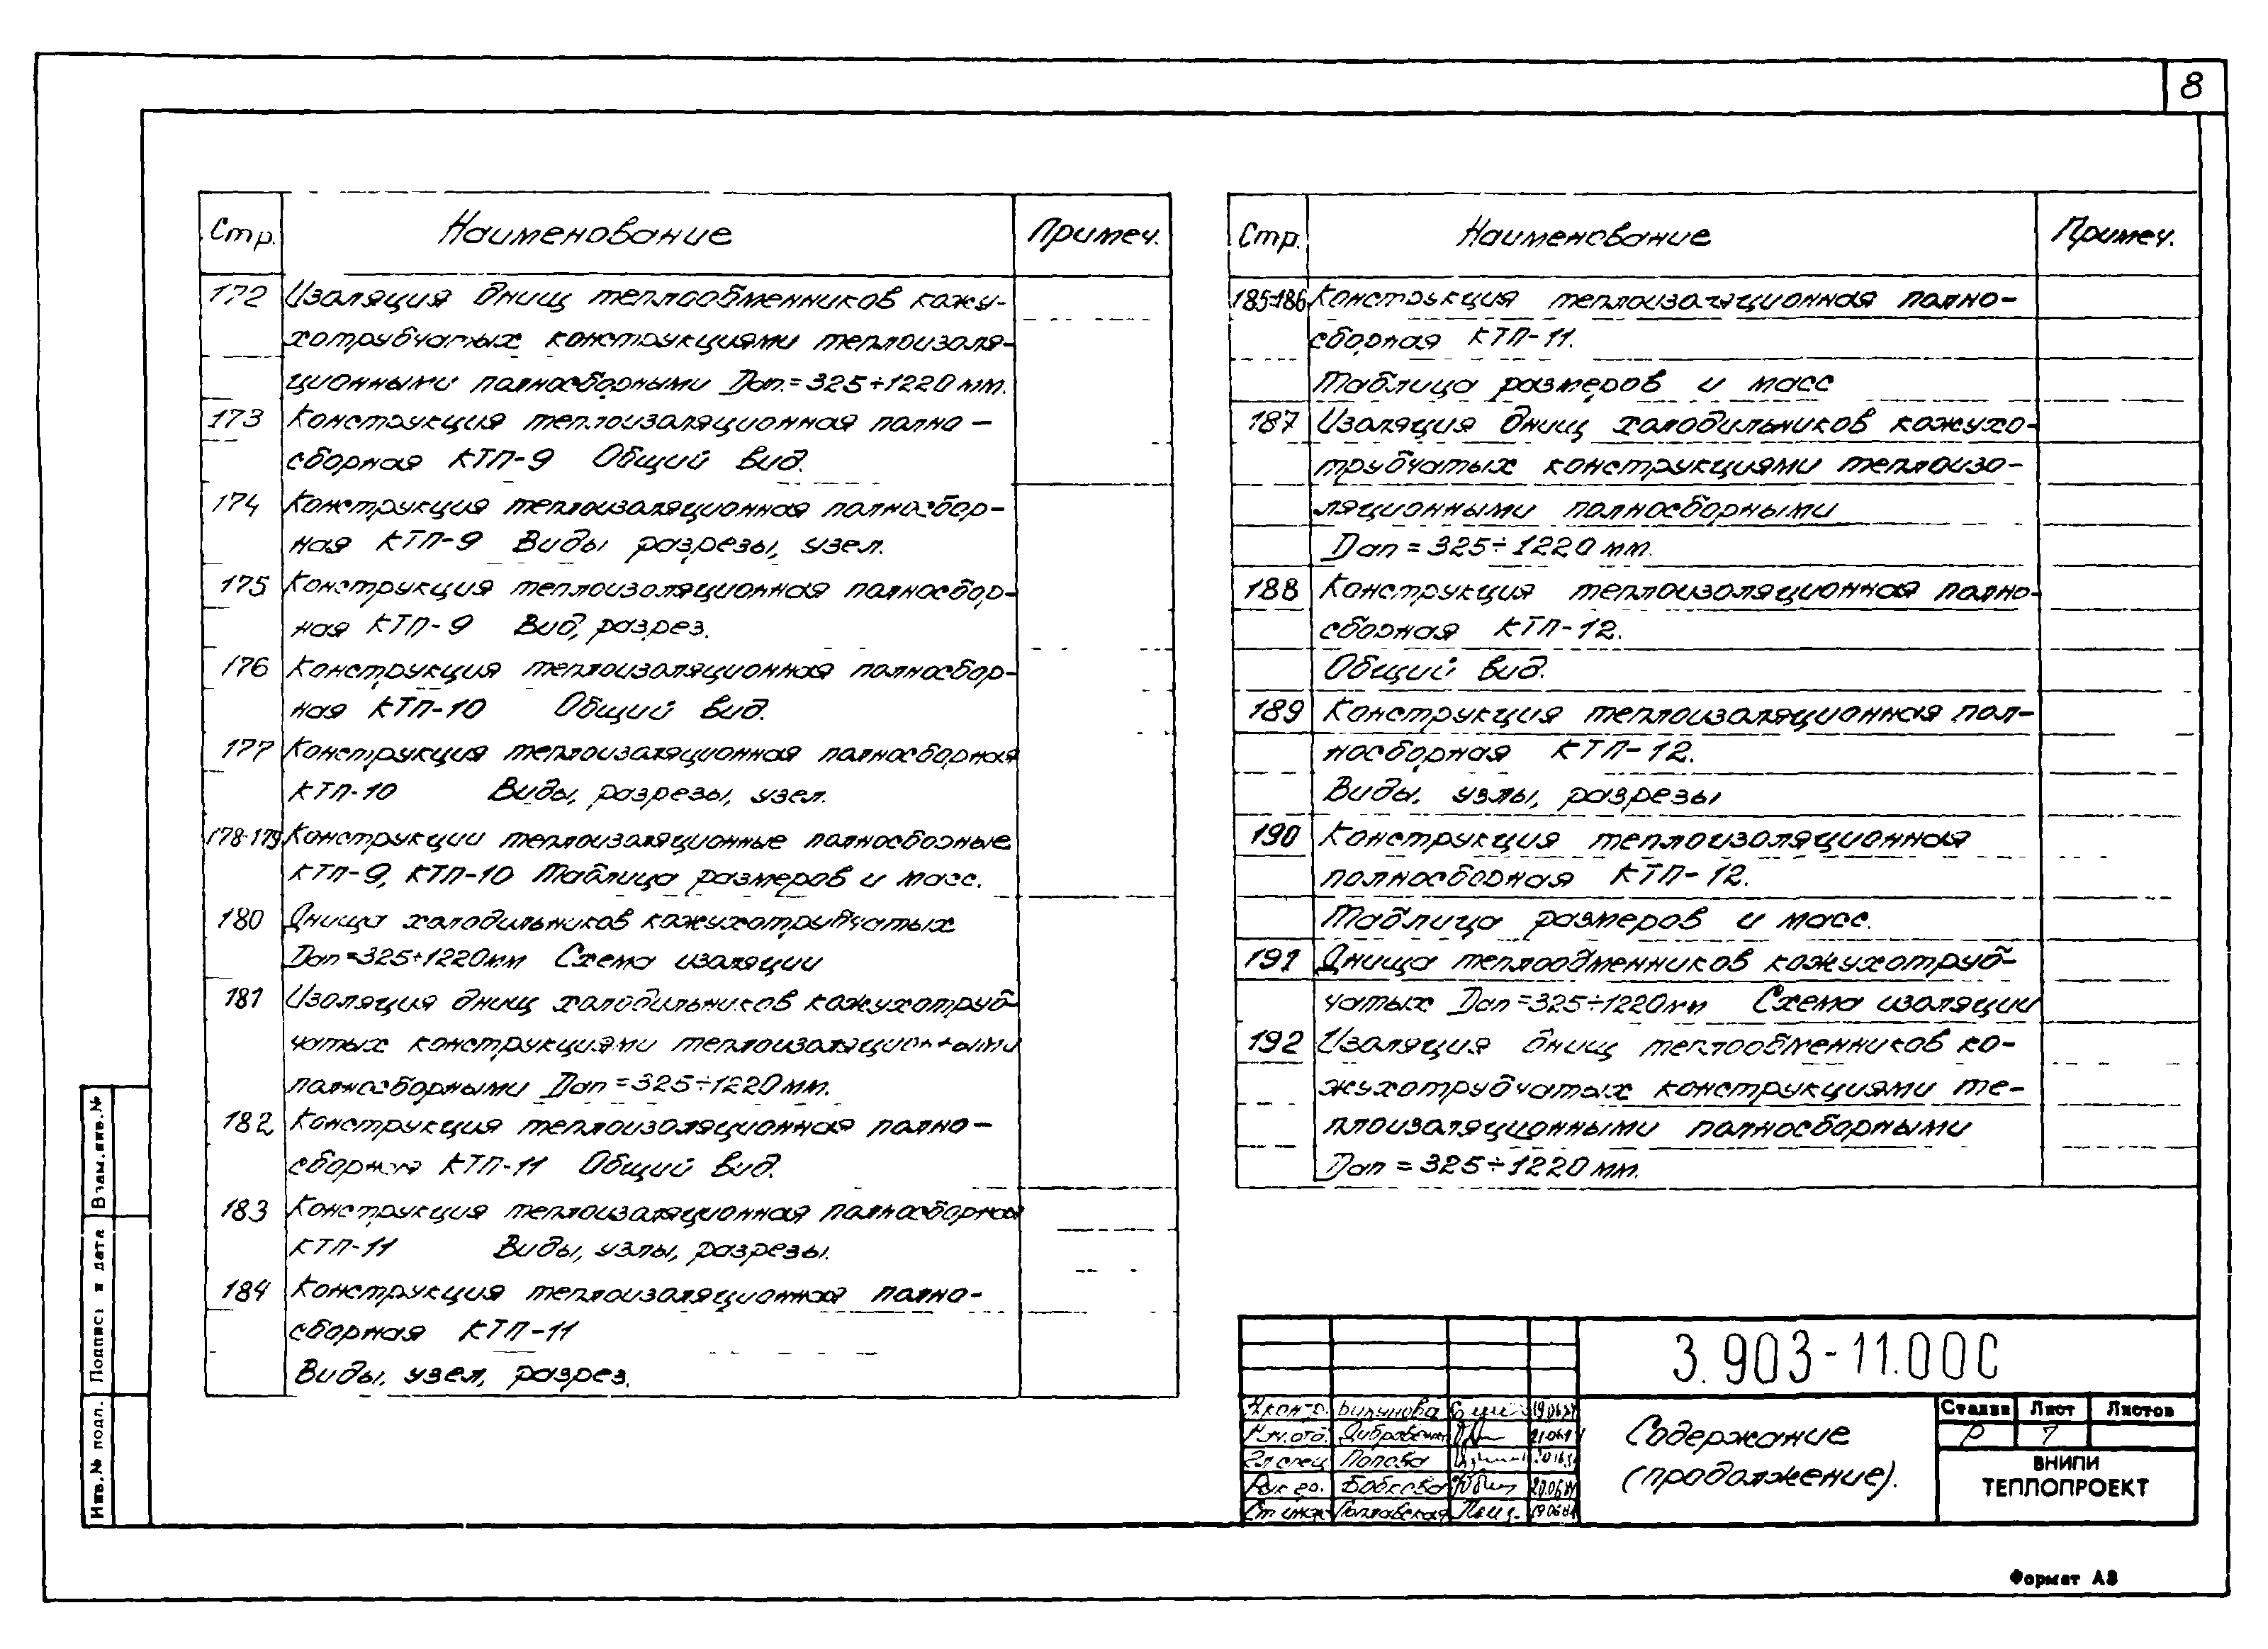 8
Стр. Наименование Примеч.
172 Изоляция днищ теплообменников кожу-
хотрубчатых конструкциями теплоизоля-
ционными полносборными Dап.=325÷1220мм.
173 Конструкция теплоизоляционная полно-
сборная КТП-9 Общий вид.
174 Конструкция теплоизоляционная полносбор-
ная КТП-9 Виды разрезы, узел.
175 Конструкция теплоизоляционная полносбор-
ная КТП-9 Вид, разрез.
176 Конструкция теплоизоляционная полносбор-
ная КТП-10 Общий вид.
177 Конструкция теплоизоляционная полносборная
КТП-10 Виды, разрезы, узел.
178-179 Конструкции теплоизоляционные полносборные
КТП-9, КТП-10 Таблица размеров и масс.
180 Днища холодильников кожухотрубчатых
Dап=325÷1220мм Схема изоляции
181 Изоляция днищ холодильников кожухотруб-
чатых конструкциями теплоизоляционными
полносборными Dап=325÷1220мм.
182 Конструкция теплоизоляционная полно-
сборная КТП-11 Общий вид.
183 Конструкция теплоизоляционная полносборная
КТП-11 Виды, узлы, разрезы.
184 Конструкция теплоизоляционная полно-
сборная КТП-11
Виды, узел, разрез.
Стр. Наименование Примеч.
185-186 Конструкция теплоизоляционная полно-
сборная КТП-11.
Таблица размеров и масс
187 Изоляция днищ холодильников кожухо-
трубчатых конструкциями теплоизо-
ляционными полносборными
Dап=325÷1220мм.
188 Конструкция теплоизоляционная полно-
сборная КТП-12.
Общий вид.
189 Конструкция теплоизоляционная пол-
носборная КТП-12.
Виды, узлы, разрезы
190 Конструкция теплоизоляционная
полносборная КТП-12.
Таблица размеров и масс.
191 Днища теплообменников кожухотруб-
чатых Dап=325÷1220мм Схема изоляции
192 Изоляция днищ теплообменников ко-
жухотрубчатых конструкциями те-
плоизоляционными полносборными
Dап=325÷1220мм.
3.903-11.00С
Н.контр.
Нач.отд.
Гл спец Попова
Рук гр. Бобкова
Ст инж Полтавская
Содержание
(продолжение).
Стадия Лист Листов
Р 7
ВНИПИ
ТЕПЛОПРОЕКТ
Взам.инв.№
Подпись и дата
Инв.№ подл.
Формат А3